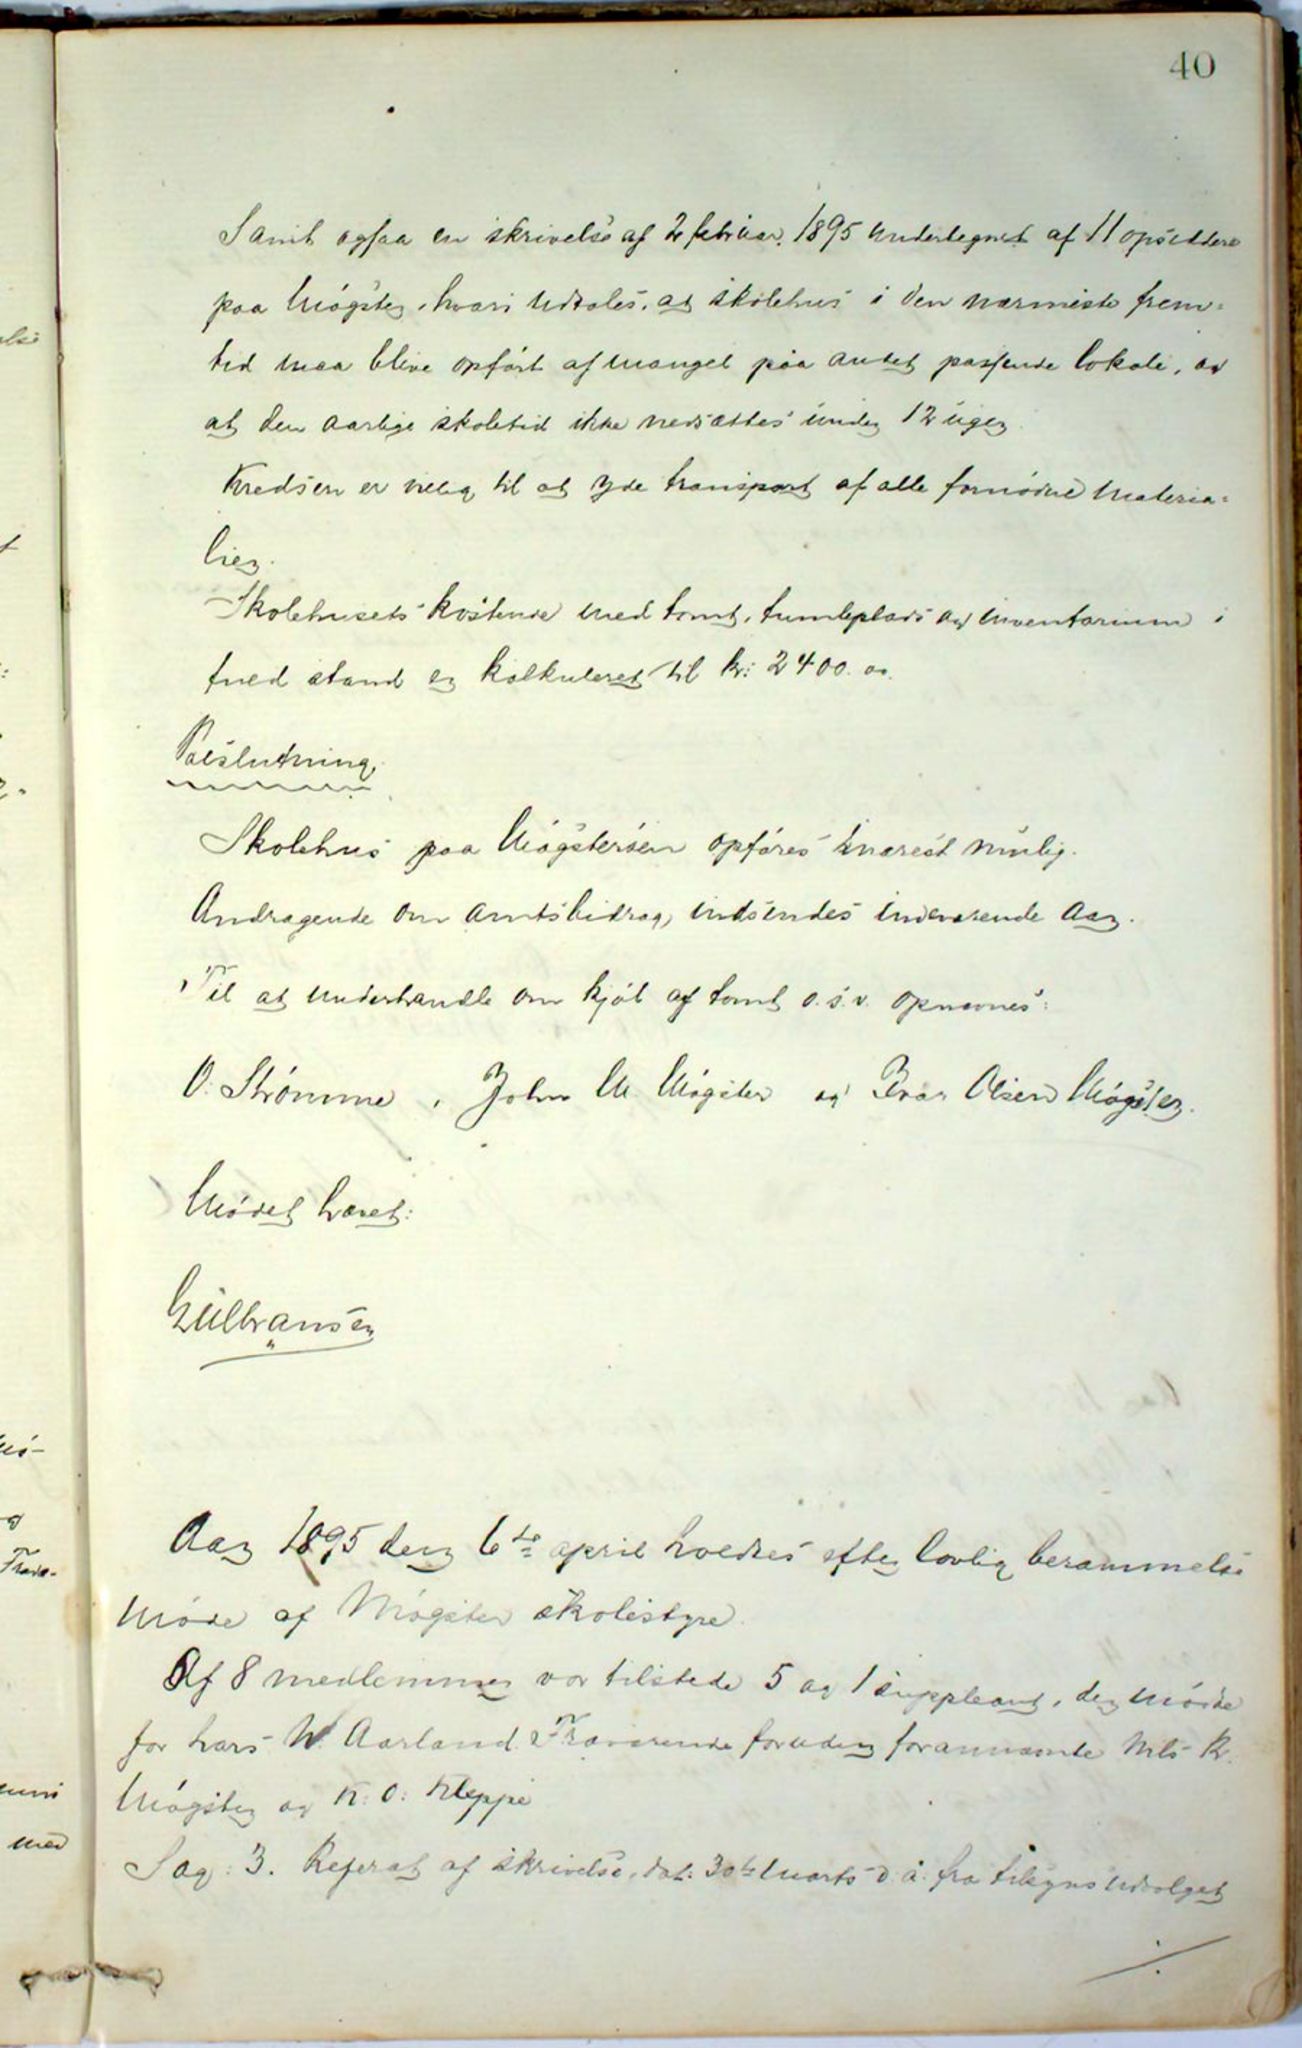 40
Samt ogsaa en skrivelse af 2 februar 1895 undertegnet af 11 opsiddere
paa Møgster, hvori udtales, at skolehus i den nærmeste frem=
tid maa blive opført af mangel paa andet passende lokale, og
at den aarlige skoletid ikke nedsættes under 12 uger.
Kredsen er villig til at yde transport af alle fornødne materia=
lier.
Skolehusets kostende med tomt, tumleplads og inventarium i
fued stand er kalkuleret til kr: 2400.00.
Beslutning,
Skolehus paa Møgsterøen opføres snarest mulig.
Andragende om amtsbidrag, indsendes indeværende aar.
Til at underhandle om kjøb af tomt o.s.v. opnævnes:
O. Strømme, John M. Møgster og Ivar Olsen Møgster.
Mødet hævet:
Gulbransen
Aar 1895 den 6te april holdtes efter lovlig berammelse
møde af Møgster skolestyre.
Af 8 medlemmer var tilstede 5 og 1 suppleant, der mødte
for Lars W. Aarland. Fraværende foruden forannævnte Nils K.
Møgster og K. O. Kleppe
Sag: 3. Referat af skrivelse, dat: 30te marts d. å. fra tilsynsudvalget
./.